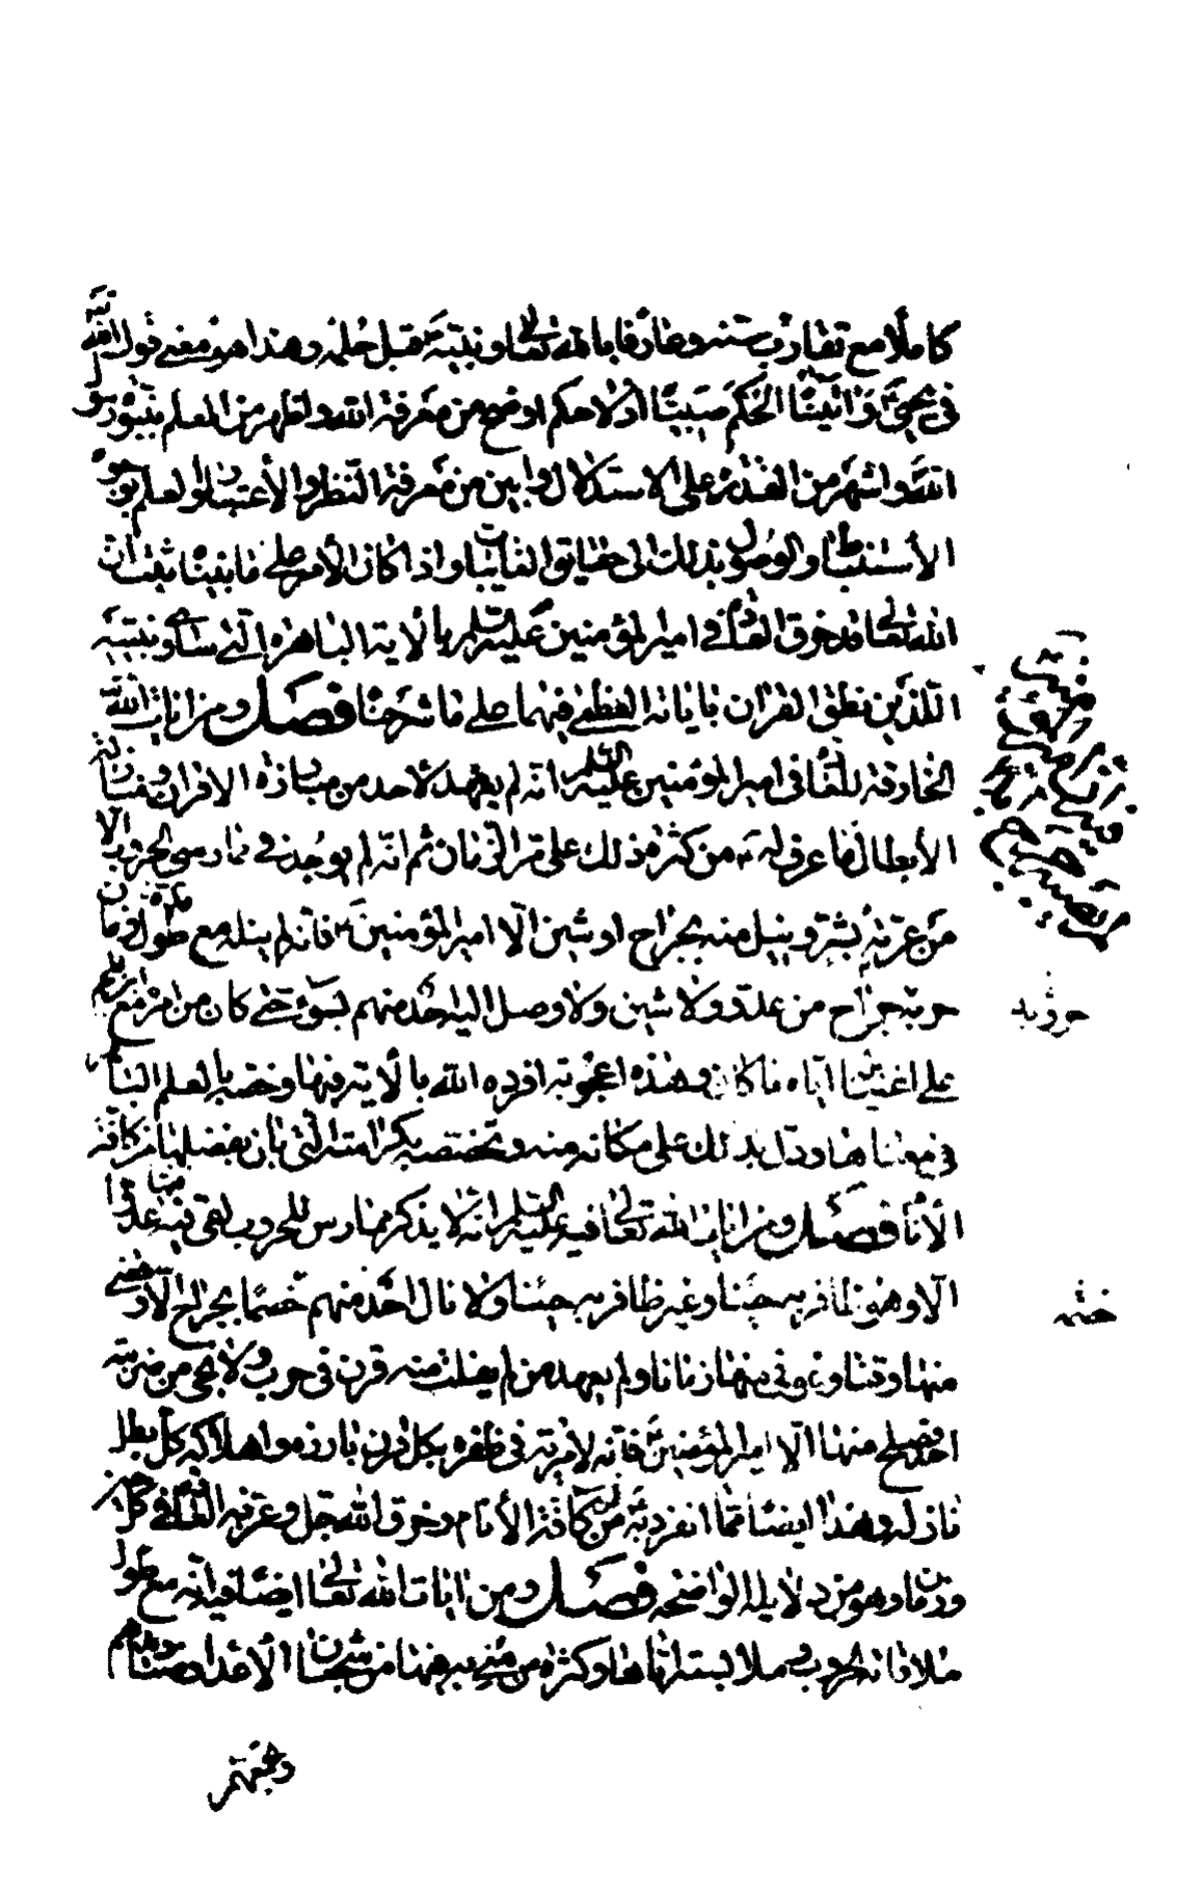 كاملا مع تقارب سنه وعارفا بالله تعالى ونبيه ع قبل حلمه وهذا هو معنى قول الله
في يحيى ع وآتيناه الحكم صبيا اذ لا حكم اوضح من معرفة الله واظهر من العلم بنبوة رسول
الله واشهر من القدرة على الاستدلال وابين من معرفة النظر والاعتبار والعلم بوجوه
الاستنباط والوصول بذلك الى حقايق الغايبات واذا كان الأمر على ما بيناه ثبت ان
الله تعالى قد خرق العادة في امير المؤمنين عليه السلم بالآية الباهرة التي ساوى نبييه
اللذين نطق القرآن باياته العظمى فيهما على ما شرحناه فصل ومن آيات الله
الخارقة للعادة في امير المؤمنين عليه السلم انه لم يعهد لأحد من مبارزة الاقران ومنازلة
الأبطال ما عرف له ع من كثرة ذلك على مر الزمان ثم انه لم يوجد في ممارسي الحروب الا
من عرته بشر ونيل منه بجراح او شين الا امير المؤمنين ع فانه لم ينله مع طول مدة زمان
حربه جراح من عدو ولا شين ولا وصل اليه احد منهم بسوء حتى كان من امره مع ابن ملجم
على اغتياله اياه ما كان وهذه اعجوبة افرده الله بالآية فيها وخصه بالعلم الباهر
في معناها ودل بذلك على مكانه منه وتخصصه بكرامته التي بان بفضلها من كافة
الأنام فصل ومن آيات الله تعالى فيه عليه السلم انه لا يذكر ممارس للحروب لقي فيها عدوا
الا وهو ظافر به حينا وغير ظافر به حينا ولا نال احد منهم خصما بجراح الا وقضى
منها وقتا وعوفي منها زمانا ولم يعهد من لم يفلت منه قرن في حرب ولا نجى من ضربته
احد فصلح منها الا امير المؤمنين ع فانه لا مرية في ظفره بكل قرن بارزه واهلاكه كل بطل
نازله وهذا ايضا مما انفرد به ع من كافة الأنام وخرق الله جل وعز به العادة في كل حين
وزمان وهو من دلايله الواضحة فصل ومن آيات الله تعالى ايضا فيه انه مع طول
ملاقاته الحروب وملابسته اياها وكثرة من مني به فيها من شجعان الأعداء وصناديدهم
وتجمعهم
حروبه
خصمه